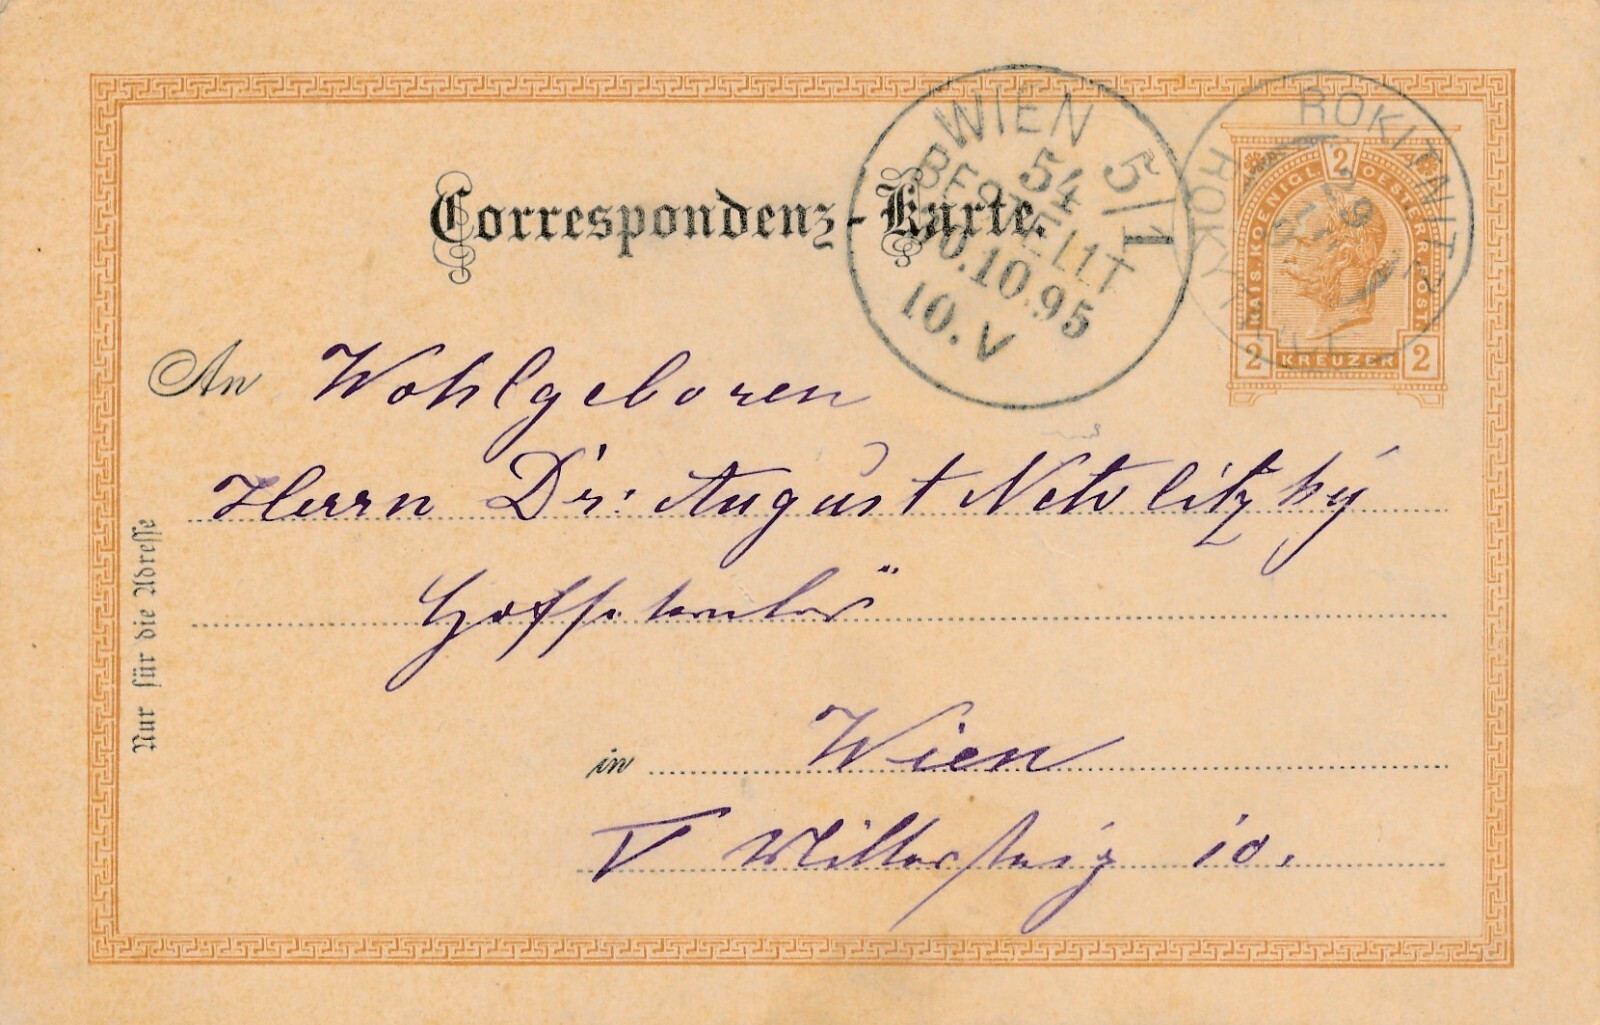 Correspondenz-Karte.
WIEN 5/1
54
BESTELLT
10.10.95
10.V
ROKITNITZ
ROKYTNIT
9
2
KAIS. KOENIGL. OESTERR. POST.
2 KREUZER 2
An Wohlgeboren
Herrn Dr: August Netolitzký
in Wien
V Mittersteig 10.
Nur für die Adresse